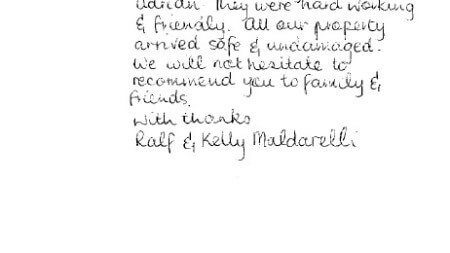 Adrian. They were hard working
& friendly. All our property
arrived safe & undamaged.
We will not hesitate to
recommend you to family &
friends.
With thanks
Ralf & Kelly Maldarelli